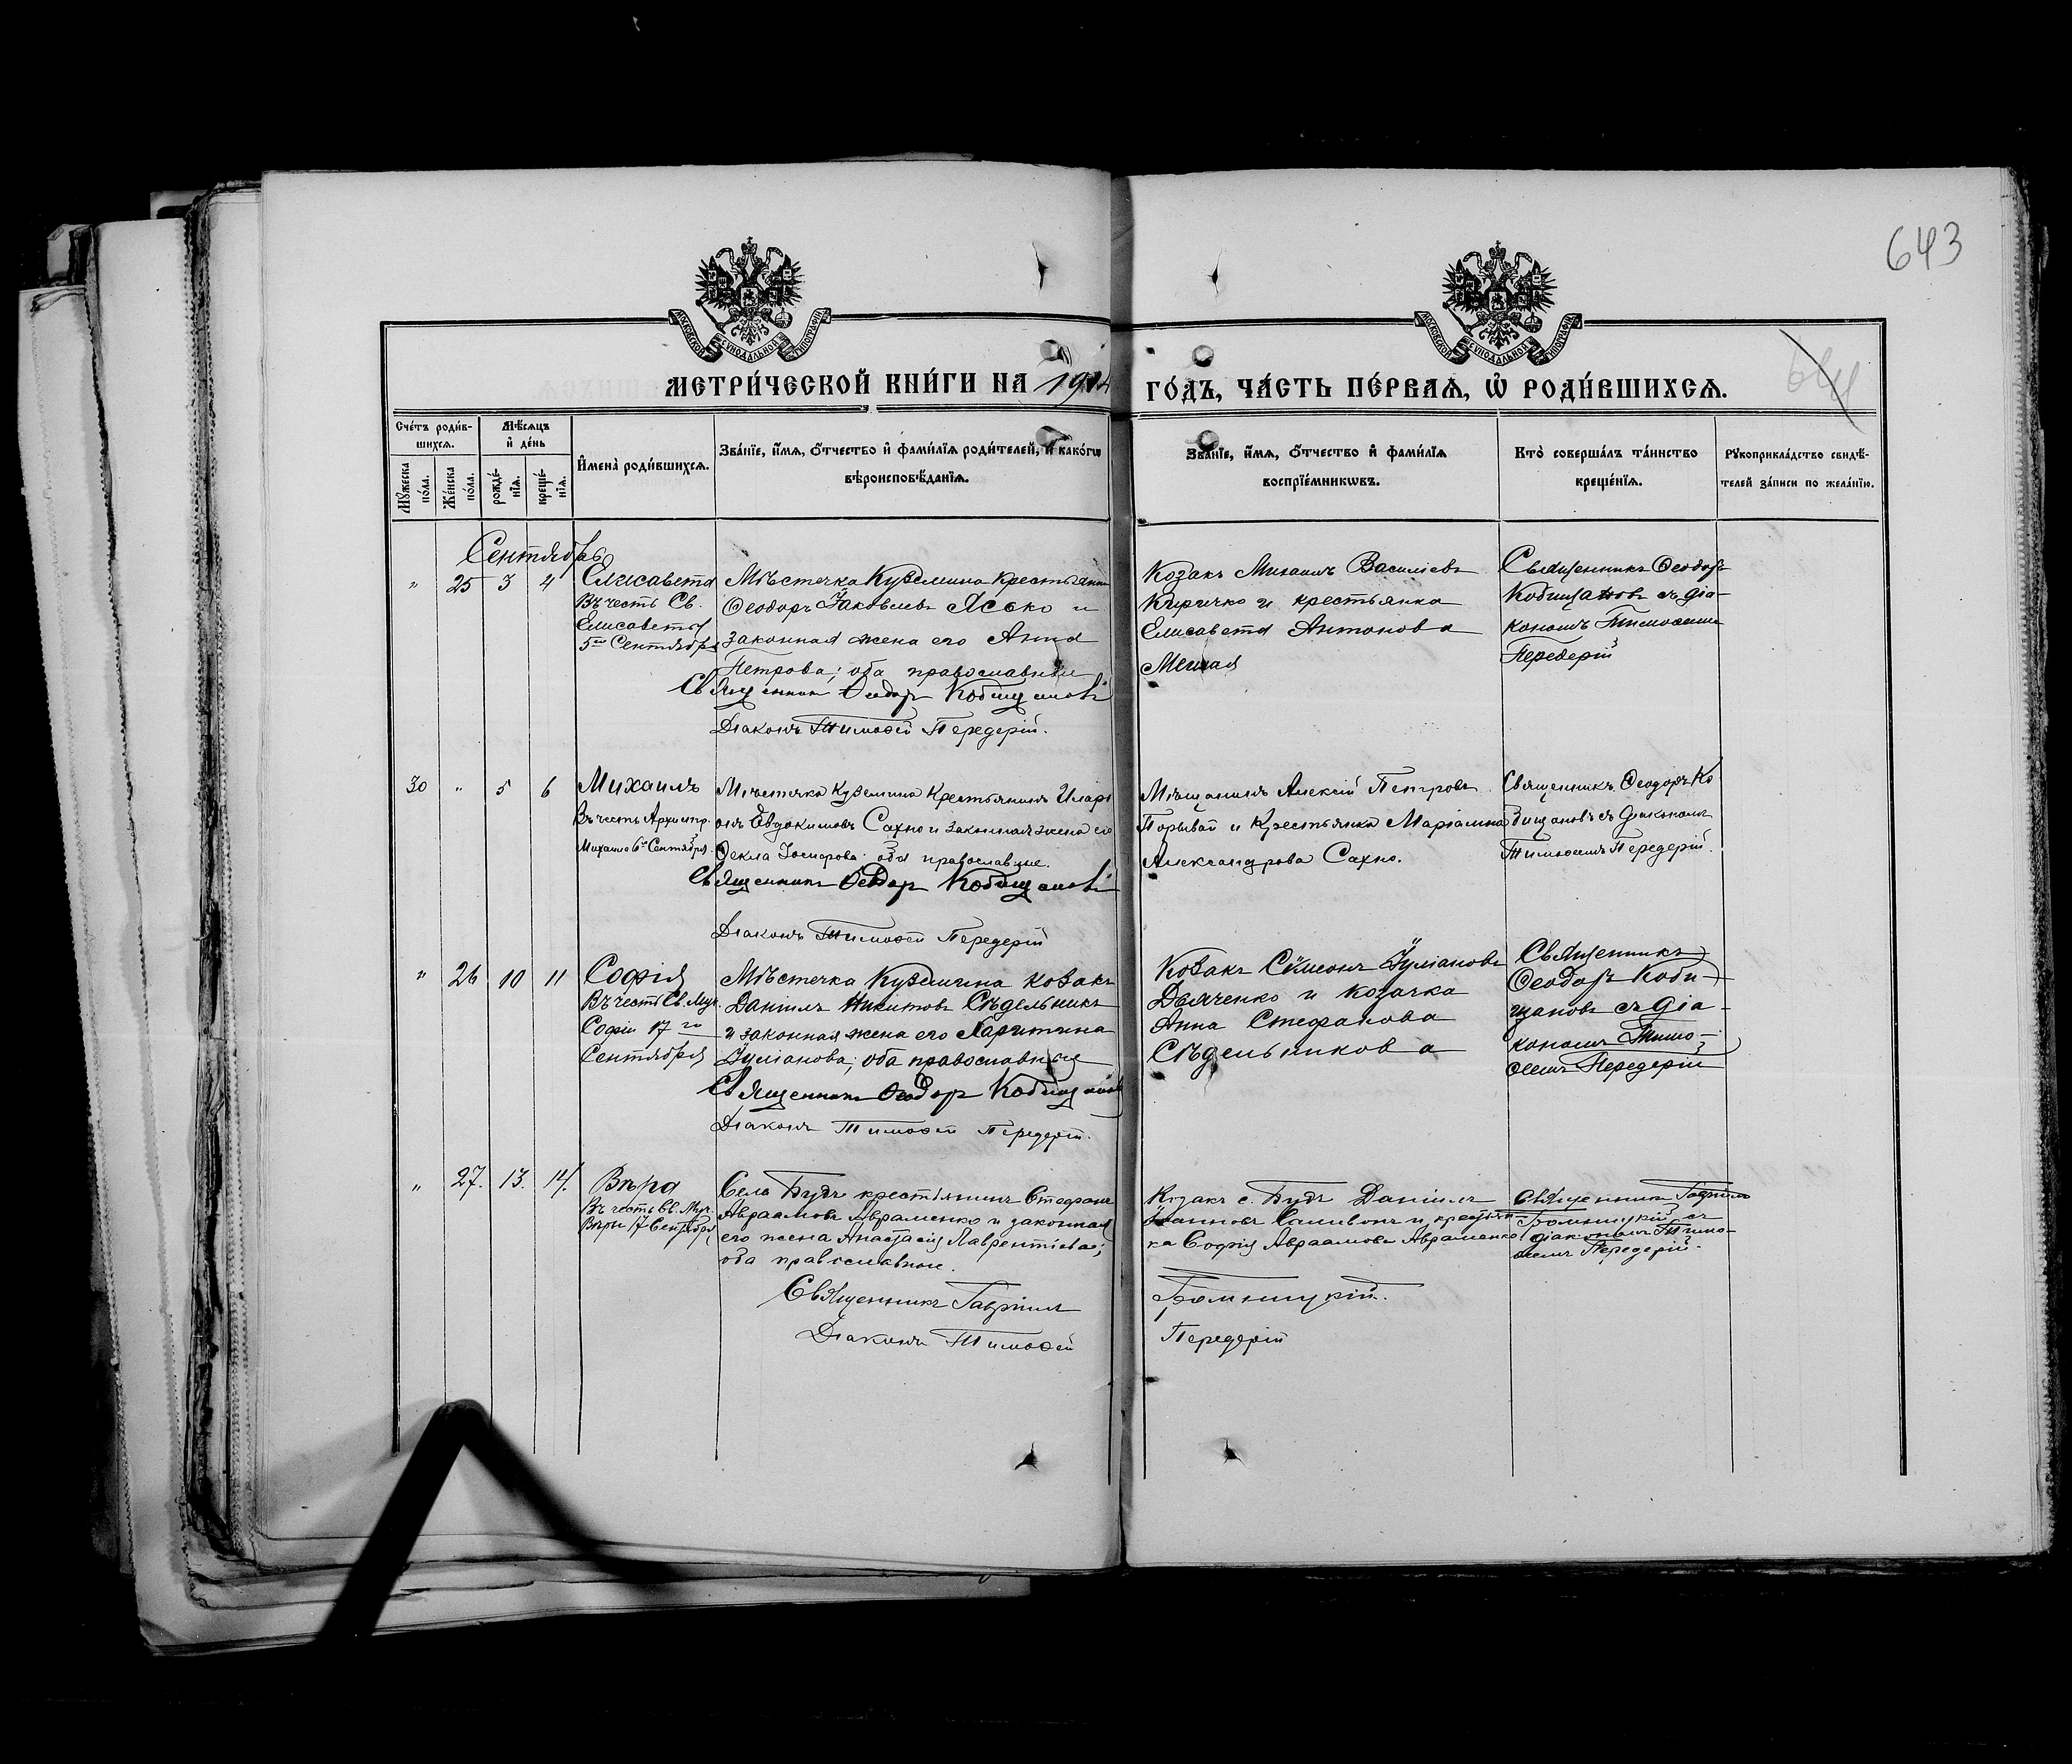 643
МОСКОВСКОЙ СУНОДАЛЬНОЙ ТИПОГРАФІИ
МОСКОВСКОЙ СУНОДАЛЬНОЙ ТИПОГРАФІИ
МЕТРИ́ЧЕСКОЙ КНИ́ГИ НА 1914 ГО́ДЪ, ЧА́СТЬ ПЕ́РВАЯ, Ѽ РОДИ́ВШИХСЯ.
Сче́тъ роди́в-
шихся.
Мѣ́сяцъ
и де́нь
Мꙋ́жеска по́ла.
Же́нска по́ла.
рожде́-
нія.
креще́-
нія.
Имена̀ роди́вшихся.
Зва́ніе, и́мя, ѻ́тчество и фами́лія роди́телей, и како́гѡ
вѣроисповѣ́данія.
Зва́ніе, и́мя, ѻ́тчество и фами́лія
воспріе́мникѡвъ.
Кто̀ соверша́лъ та́инство
креще́нія.
Рꙋкоприкла́дство свидѣ́-
телей за́писи по жела́нію.
Сентябрь
" 25 3 4
Елисавета
Въ честь Св.
Елисаветы
5го Сентября
Мѣстечка Куземина крестьянин
Ѳеодоръ Іаковлевъ Ясько и
законная жена его Анна
Петрова; оба православные
Священникъ Ѳеодоръ Кобищановъ
Діаконъ Тимоѳей Передерій.
Козакъ Михаилъ Василіевъ
Киричко и крестьянка
Елисавета Антонова
Священникъ Ѳеодоръ
Кобищановъ съ діа-
кономъ Тимоѳеемъ
Передерій
30 " 5 6
Михаилъ
Въ честь Архистр.
Михаила 6го Сентября.
Мѣстечка Куземина Крестьянинъ Иларі
онъ Евдокимовъ Сахно и законная жена его
Ѳекла Іосифова оба православные.
Священникъ Ѳеодоръ Кобищановъ
Діаконъ Тимоѳей Передерій
Мѣщанинъ Алексій Петровъ
Порывай и Крестьянка Маріамна
Александрова Сахно.
Священникъ Ѳеодоръ Ко
бищановъ съ діакономъ
Тимоѳеемъ Передерій.
" 26 10 11
Софія
Въ честь Св. Муч.
Софіи 17го
Сентября
Мѣстечка Куземина козакъ
Даніилъ Никитовъ Сѣдельникъ
и законная жена его Харитина
Іуліанова; оба православные
Священникъ Ѳеодоръ Кобищановъ
Діаконъ Тимоѳей Передерій.
Козакъ Сѵмеонъ Іуліановъ
Дьяченко и козачка
Анна Стефанова
Сѣдельникова
Священникъ
Ѳеодоръ Коби-
щановъ съ діа-
кономъ Тимо-
ѳеемъ Передерій
" 27. 13. 14.
Вѣра
Въ честь Св. Муч.
Вѣры 17 Сентября
Села Будъ крестьянинъ Стефанъ
Авраамовъ Авраменко и законная
его жена Анастасія Лаврентіева;
оба православные.
Священникъ Гавріилъ
Діаконъ Тимоѳей
Козакъ с. Будъ Даніилъ
Іоанновъ Саливонъ и крестьян-
ка Софія Авраамова Авраменко
Передерій
Священникъ Гавріилъ
съ
діакономъ Тимо-
ѳеемъ Передерій.